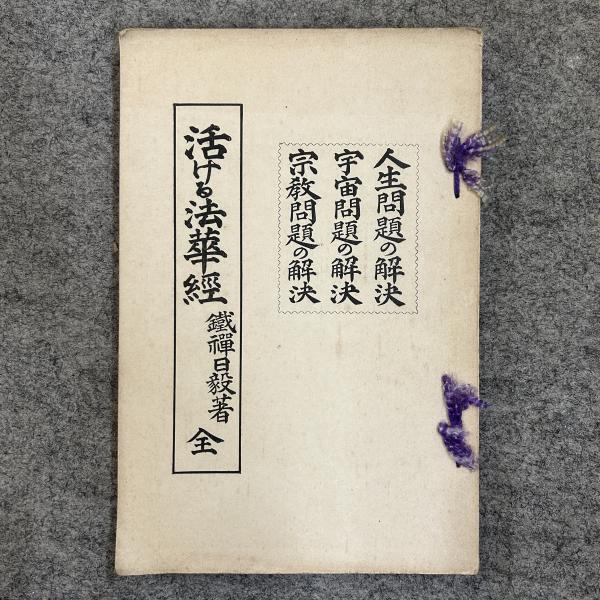 人生問題の解決
宇宙問題の解決
宗教問題の解決
活ける法華經
鐵禪日毅著
全